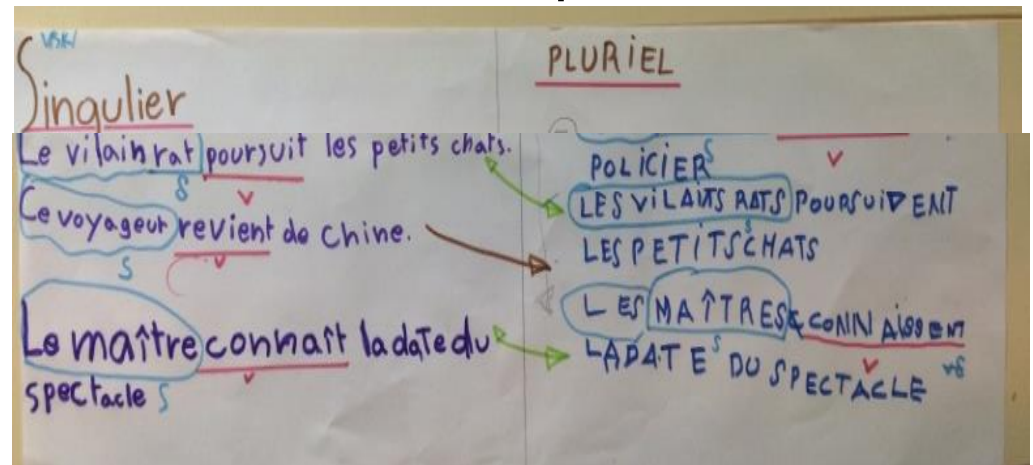 Singulier
Le vilain rat poursuit les petits chats.
S
V
Ce voyageur revient de Chine.
S
V
Le maître connaît la date du
V
spectacle S
PLURIEL
V
POLICIER S
LES VILAINS RATS POURSUIVENT
S
LES PETITS CHATS
LES MAÎTRES CONNAISSENT
S
V
LA DATE DU SPECTACLE